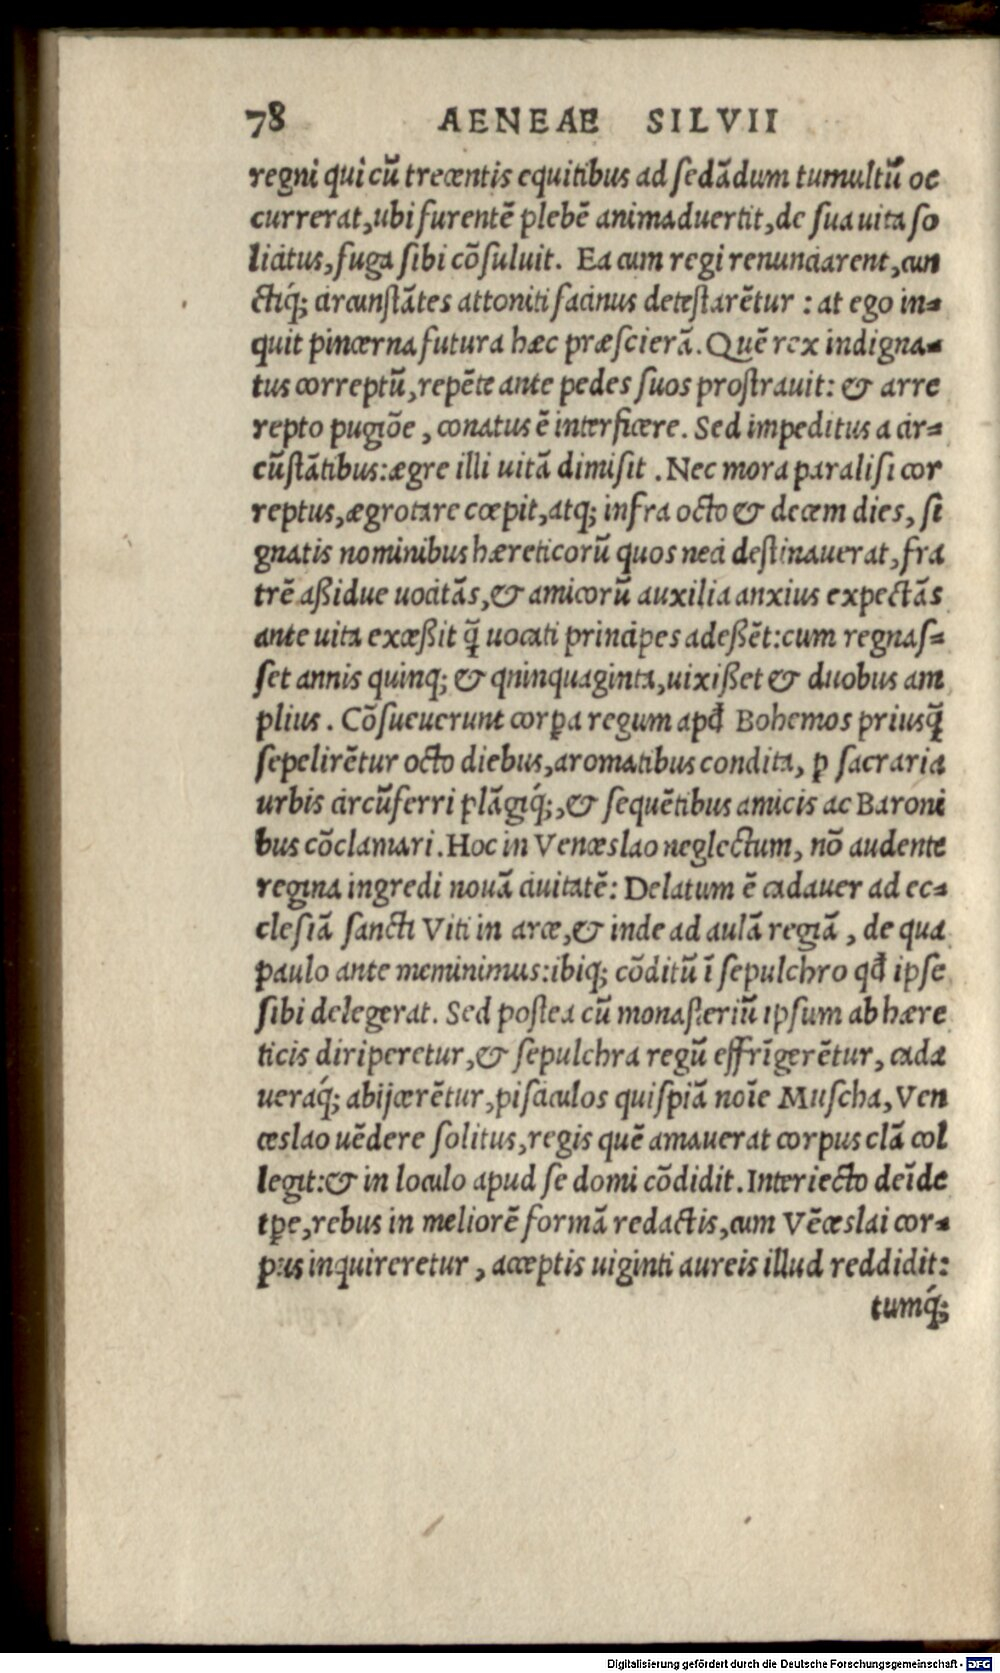 78 AENEAE SILVII
regni qui cũ trecentis equitibus ad sedãdum tumultũ oc
currerat, ubi furentẽ plebẽ animaduertit, de sua uita so
licitus, fuga sibi cõsuluit. Ea cum regi renunciarent, cun
ctiq́; circunstãtes attoniti facinus detestarẽtur : at ego in-
quit pincerna futura hæc præscierã. Quẽ rex indigna-
tus correptũ, repẽte ante pedes suos prostrauit: & arre
repto pugiõe, conatus ẽ interficere. Sed impeditus a cir-
cũstãtibus: ægre illi uitã dimisit. Nec mora paralisi cor
reptus, ægrotare cœpit, atq; infra octo & decem dies, si
gnatis nominibus hæreticorũ quos neci destinauerat, fra
trẽ aßidue uocitãs, & amicorũ auxilia anxius expectãs
ante uita exceßit q̃ uocati principes adeßẽt: cum regnas-
set annis quinq; & qninquaginta, uixißet & duobus am
plius. Cõsueuerunt corꝑa regum apđ Bohemos priusq̃
sepelirẽtur octo diebus, aromatibus condita, ꝑ sacraria
urbis circũferri plãgiq́;, & sequẽtibus amicis ac Baroni
bus cõclamari. Hoc in Venceslao neglectum, nõ audente
regina ingredi nouã ciuitatẽ: Delatum ẽ cadauer ad ec-
clesiã sancti Viti in arce, & inde ad aulã regiã, de qua
paulo ante meminimus: ibiq; cõditũ ĩ sepulchro qđ ipse
sibi delegerat. Sed postea cũ monasteriũ ipsum ab hære
ticis diriperetur, & sepulchra regũ effrĩgerẽtur, cada
ueraq́; abijcerẽtur, pisciculos quispiã noĩe Muscha, Ven
ceslao uẽdere solitus, regis quẽ amauerat corpus clã col
legit: & in loculo apud se domi cõdidit. Interiecto deĩde
tꝑe, rebus in meliorẽ formã redactis, cum Vẽceslai cor-
pus inquireretur, acceptis uiginti aureis illud reddidit:
tumq́;
Digitalisierung gefördert durch die Deutsche Forschungsgemeinschaft - DFG